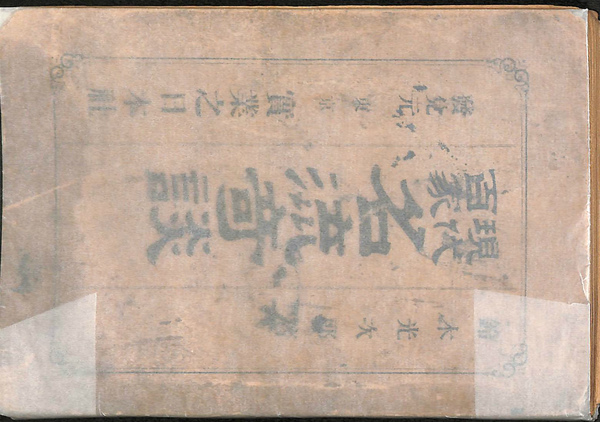 鈴木光次郎
現代百家名流奇談
發兌元 東京 實業之日本社